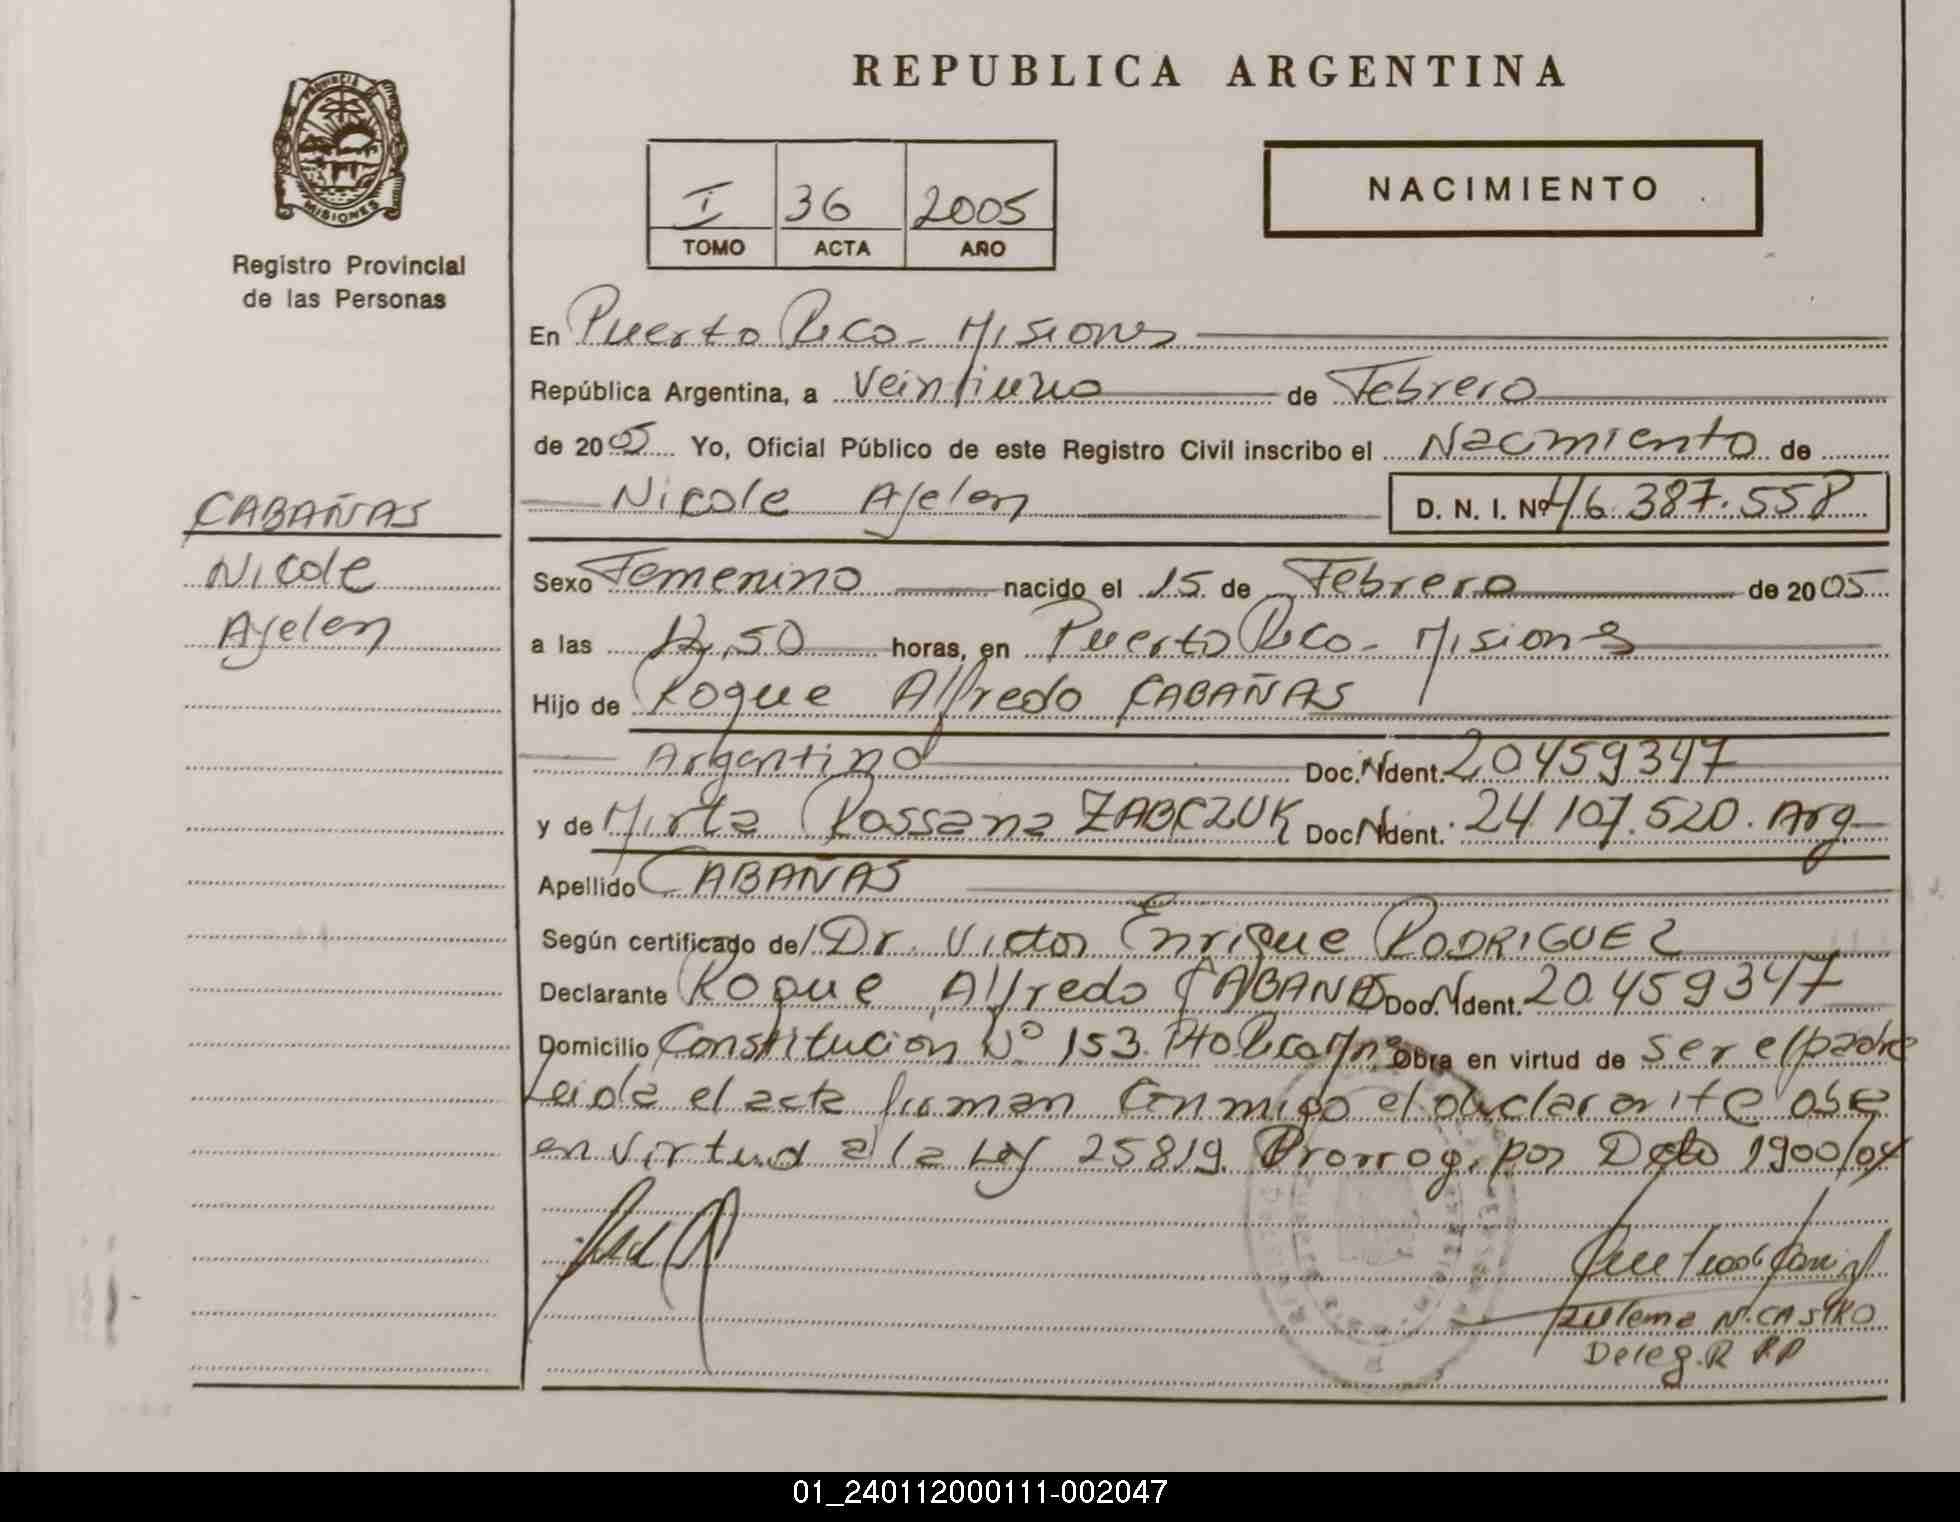 REPUBLICA ARGENTINA
PROVINCIA DE
MISIONES
Registro Provincial
de las Personas
I 36 2005
TOMO ACTA AÑO
NACIMIENTO
En Puerto Rico - Misiones
República Argentina, a Veintiuno de Febrero
de 2005 Yo, Oficial Público de este Registro Civil inscribo el Nacimiento de
Nicole Ayelen D. N. I. Nº 46.387.558
CABAÑAS
Nicole
Ayelen
Sexo Femenino nacido el 15 de Febrero de 2005
a las 12,50 horas, en Puerto Rico - Misiones
Hijo de Roque Alfredo CABAÑAS
Argentino Doc. Ident. 20459347
y de Mirta Rossana ZABCZUK Doc. Ident. 24.107.520. Arg
Apellido CABAÑAS
Según certificado de/ Dr. Victor Enrique RODRIGUEZ
Declarante Roque Alfredo CABAÑAS Doc. Ident. 20.459347
Domicilio Constitucion Nº 153. Pto Rico Mnes Obra en virtud de ser el padre
Leida el acta firman conmigo el declarante obra
en virtud a la Ley 25819. Prorrog. por Dcto 1900/04
Zulema N. CASTRO
Deleg. R P.P
01_240112000111-002047